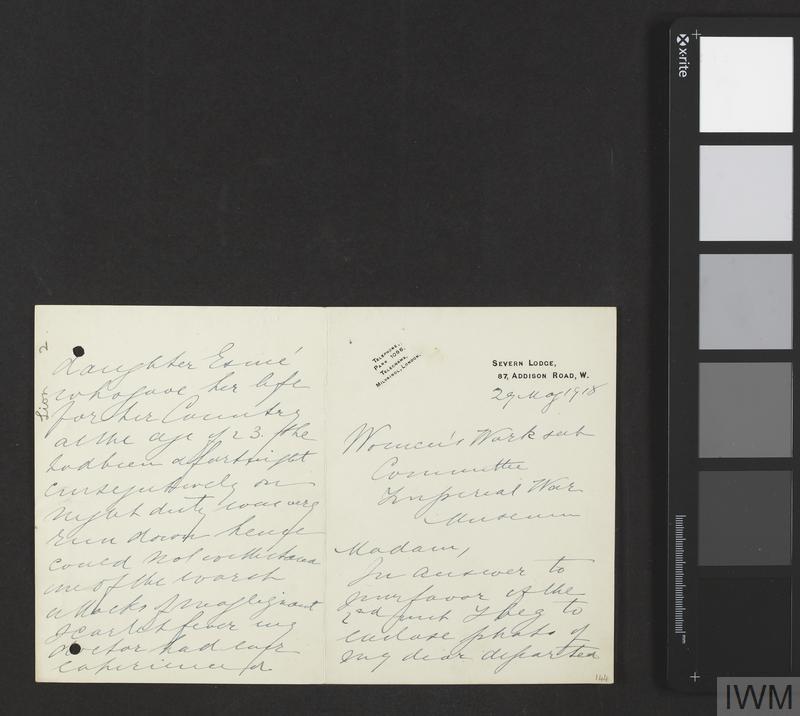 TELEPHONE,
PARK 1098.
TELEGRAMS,
LONDON.
SEVERN LODGE,
87, ADDISON ROAD, W.
29 May 1918
Women's Work sub
Committee
Imperial War
Museum
Madam,
In answer to
your favor of the
2nd inst I beg to
enclose photo of
my dear departed
144
Lion 2
daughter Esmé
who gave her life
for her Country
at the age of 23. She
had been a fortnight
consequtively on
night duty was very
run down hence
could not withstand
one of the worst
attacks of malignant
Scarlet fever my
doctor had ever
experienced
x·rite
IWM